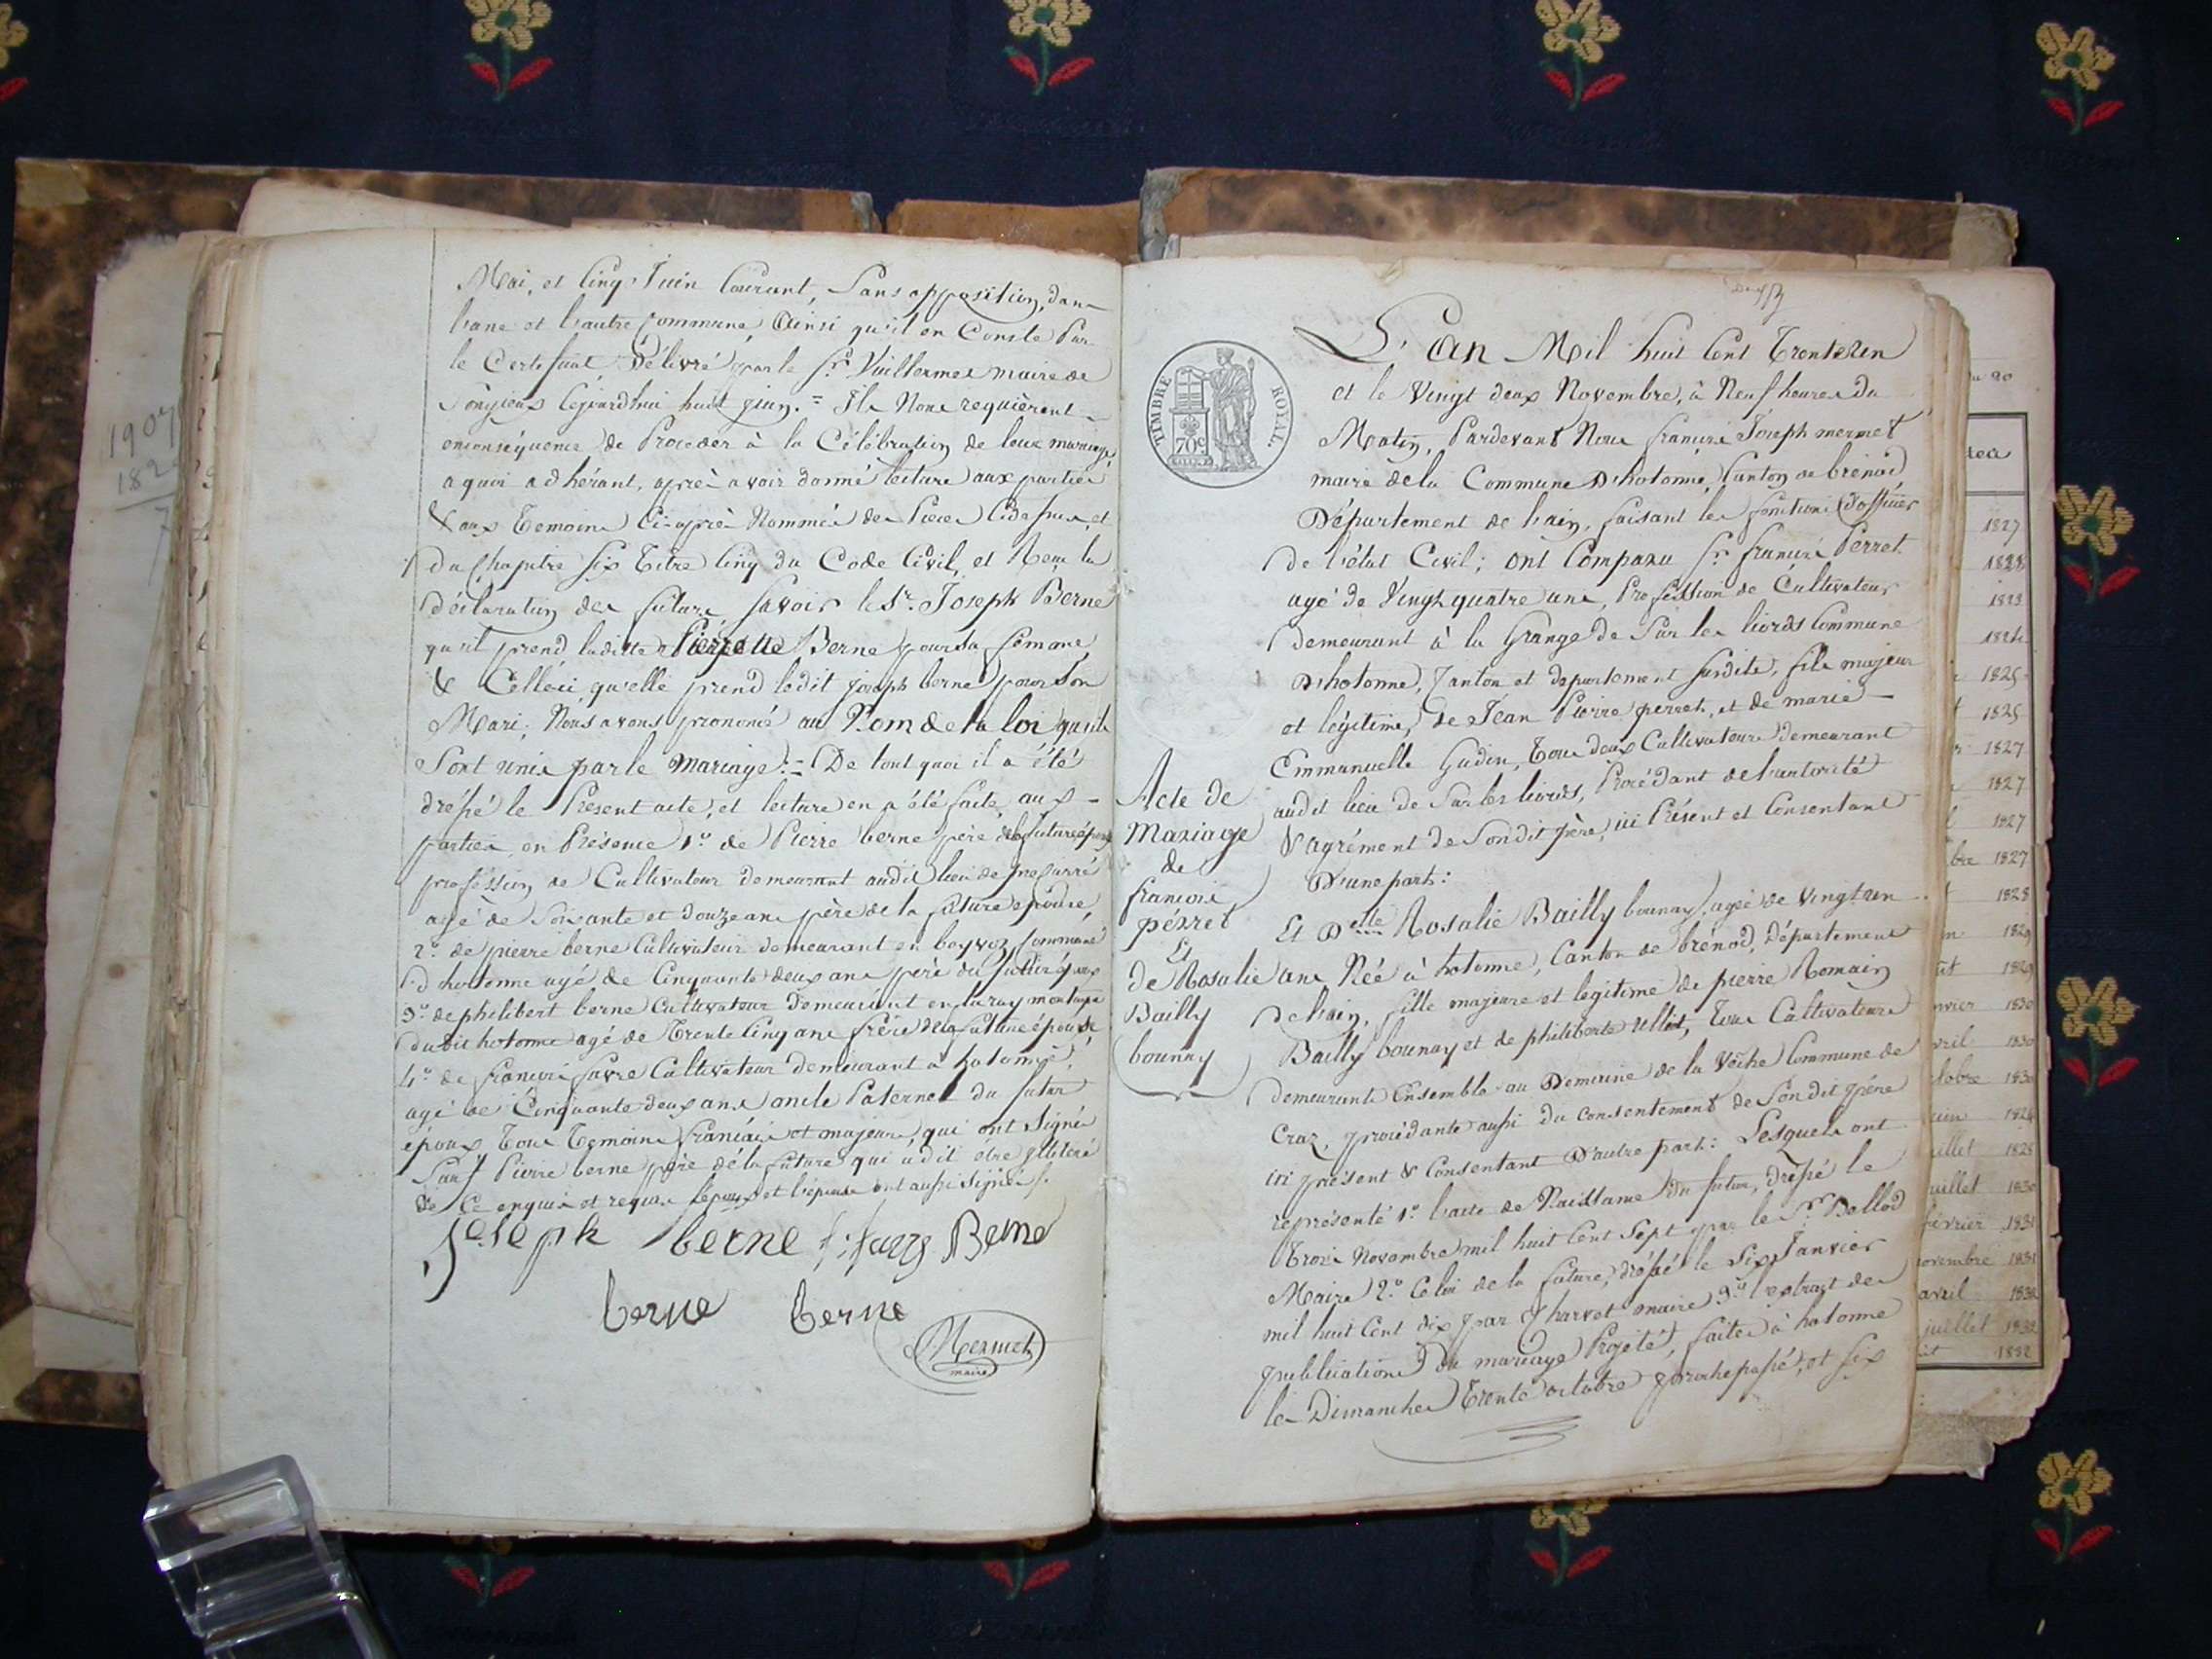 Mai, et Cinq Juin Courant, Sans opposition, dans
l'une et l'autre Commune Ainsi qu'il en Conste Par
le Certificat Délivré par le Sr. Vuillermet maire de
Songieux Cejourdhui huit juin. = Ils Nous requièrent
enconséquence de Proceder à la Célébration de leur mariage,
a quoi adhérant, après avoir donné lecture aux parties
& aux Temoins Ci-après Nommés des Pièces Cidessus, et
du Chapitre Six Titre Cinq du Code Civil, et Reçu la
déclaration des futurs, Savoir le Sr. Joseph Berne
qu'il prend ladite Pierrette Berne pour sa femme,
& Celleci qu'elle prend ledit joseph berne pour Son
Mari; Nous avons prononcé au Nom de la loi qu'ils
Sont unis par le Mariage. = De tout quoi il a été
dressé le Présent acte, et lecture en a été faite, aux
parties, en Présence 1.° de Pierre berne père
profession de Cultivateur demeurant audit lieu de
agé de Soixante et douze ans père de la future epouse,
2.° de pierre berne Cultivateur demeurant en Commune
d'hotonne agé de Cinquante deux ans père du futur époux
3.° de philibert berne Cultivateur Demeurant en
dudit hotonne agé de Trente Cinq ans frère de la future épouse,
4.° de françois favre Cultivateur demeurant à hotonne,
agé de Cinquante deux ans oncle Paternel du futur
époux Tous Temoins français et majeurs, qui ont Signé
Sauf Pierre berne père de la future qui a dit être
de Ce enquis et requis l'époux et l'épouse ont aussi Signés.
Joseph berne Berne
berne berne
Mermet
maire
TIMBRE ROYAL.
70c
L'an Mil huit Cent Trente Un
et le Vingt deux Novembre, à Neuf heures du
Matin, Pardevant Nous françois Joseph mermet
maire de la Commune D'hotonne, Canton de brénod,
Département de l'ain, faisant les fonctions d'officier
de l'état Civil; ont Comparu Sr. françois Perret
agé de Vingt quatre ans, Profession de Cultivateur
demeurant à la Grange de Sur les lioras Commune
D'hotonne, Canton et departement Susdits, fils majeur
et légitime, de Jean Pierre perret, et de marie
Emmanuelle Gudin, Tous deux Cultivateurs demeurant
audit lieu de Sur les Procédant de l'autorité
& agrément de Sondit père, ici Présent et Consentant
D'une part:
Et Delle Rosalie Bailly bounay, agée de Vingt un
ans Née à hotonne, Canton de brénod, Département
de l'ain, fille majeure et legitime de pierre Romain
Bailly bounay et de philiberte Tous Cultivateurs
demeurants Ensemble au Domaine de la Vèche Commune de
Craz, procédante aussi du consentement de Sondit père
ici présent & Consentant D'autre part: Lesquels ont
représenté 1.° l'acte de Naissance du futur, dressé le
Trois Novembre mil huit Cent Sept par le Sr. Ballod
Maire 2.° Celui de la future, dréssé le Six Janvier
mil huit Cent dix par Charvet maire 3.° l'extrait des
publications du mariage Projeté, faites à hotonne
les Dimanches Trente octobre prochepassé, et Six
Acte de
Mariage
de
françois
pérret
Et
de Rosalie
Bailly
bounay
1907
182
1827
1828
1823
1824
1825
1825
1827
1827
1827
bre 1827
1828
1829
1829
nvier 1830
vril 1830
ctobre 1830
uin 1826
uillet 1828
uillet 1830
février 1831
novembre 1831
avril 1832
juillet 1832
1832